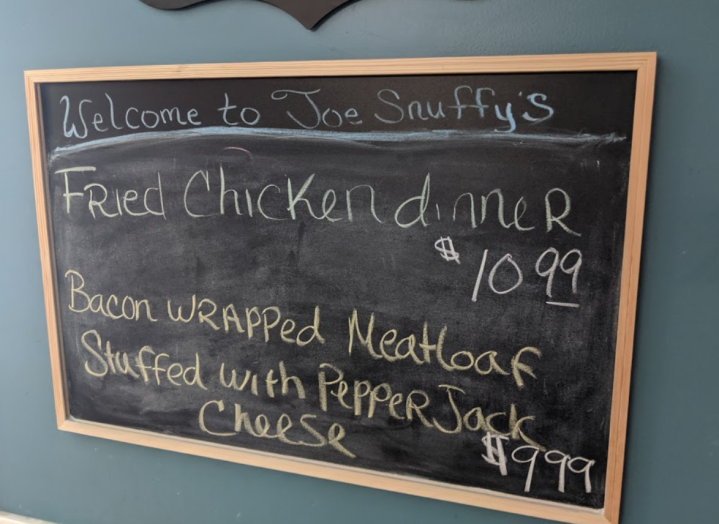 Welcome to Joe Snuffy's
FRied Chicken dinneR
$10 99
Bacon WRAPPed Meatloaf
Stuffed with PePPeR Jack
Cheese
$9 99